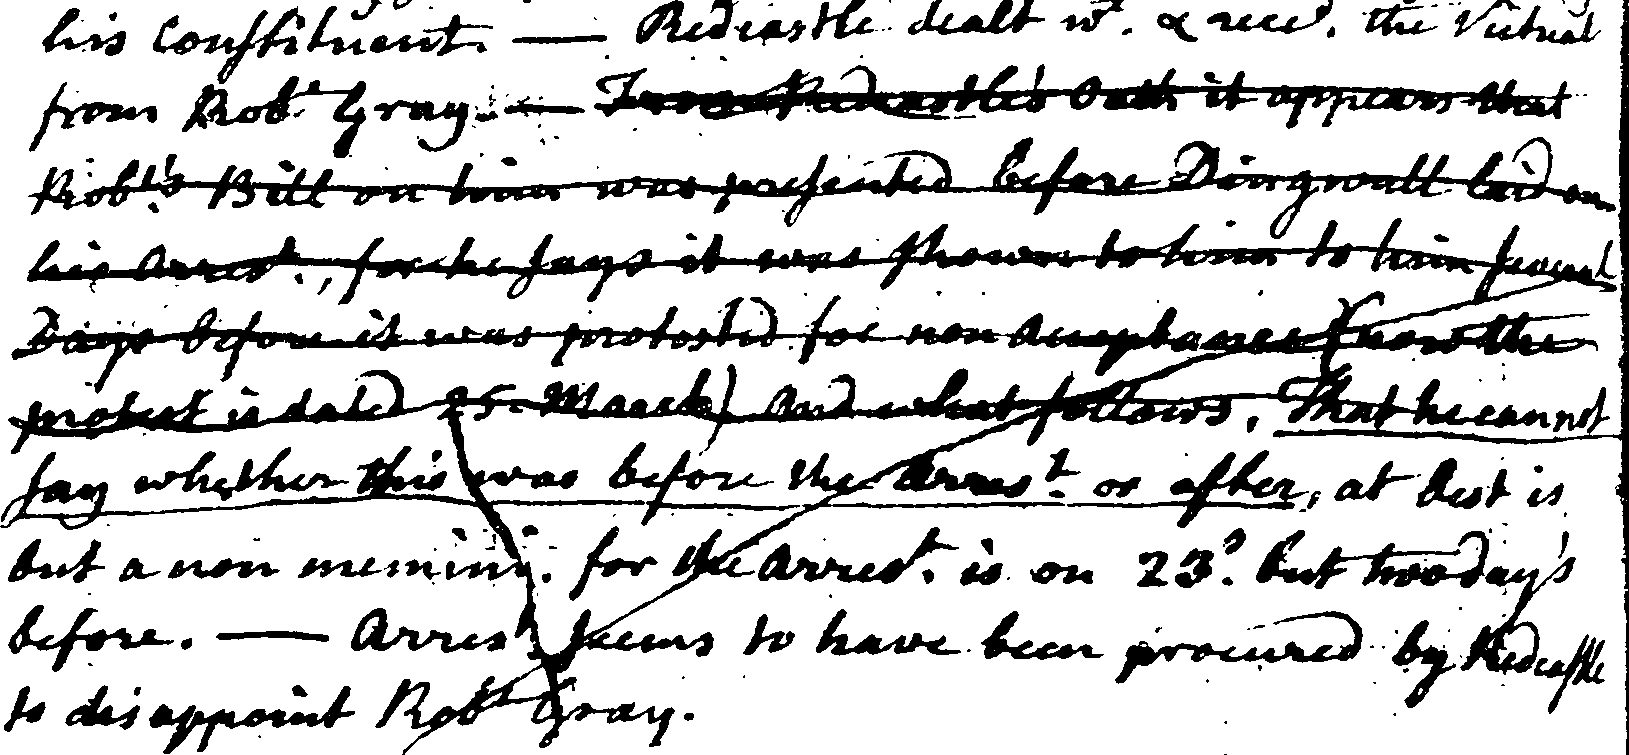 his Constituent. — Redcastle dealt wt. & recd. the Victual
from Robt. Gray. — From Redcastle's Oath it appears that
Robt's Bill on him was presented before Dingwall laid on
his Arrest., for he says it was shown to him to him several
Days before it was protested for non Acceptance (now the
protest is dated 25. March) And what follows, That he cannot
say whether this was before the Arrest. or after, at best is
but a non memini. for the Arrest. is on 23d. but two days
before. — Arrest. seems to have been procured by Redcastle
to disappoint Robt Gray.